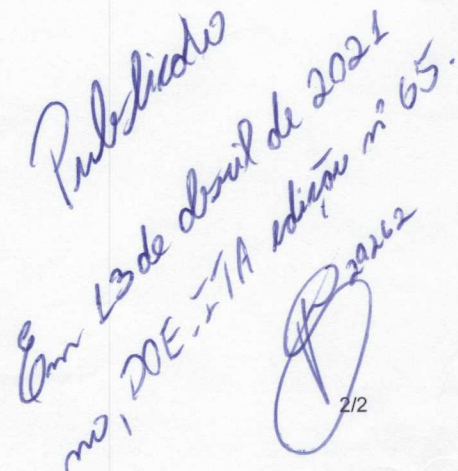 Publicado
Em 13 de abril de 2021
no, DOE-ITA edição nº 65.
29262
2/2